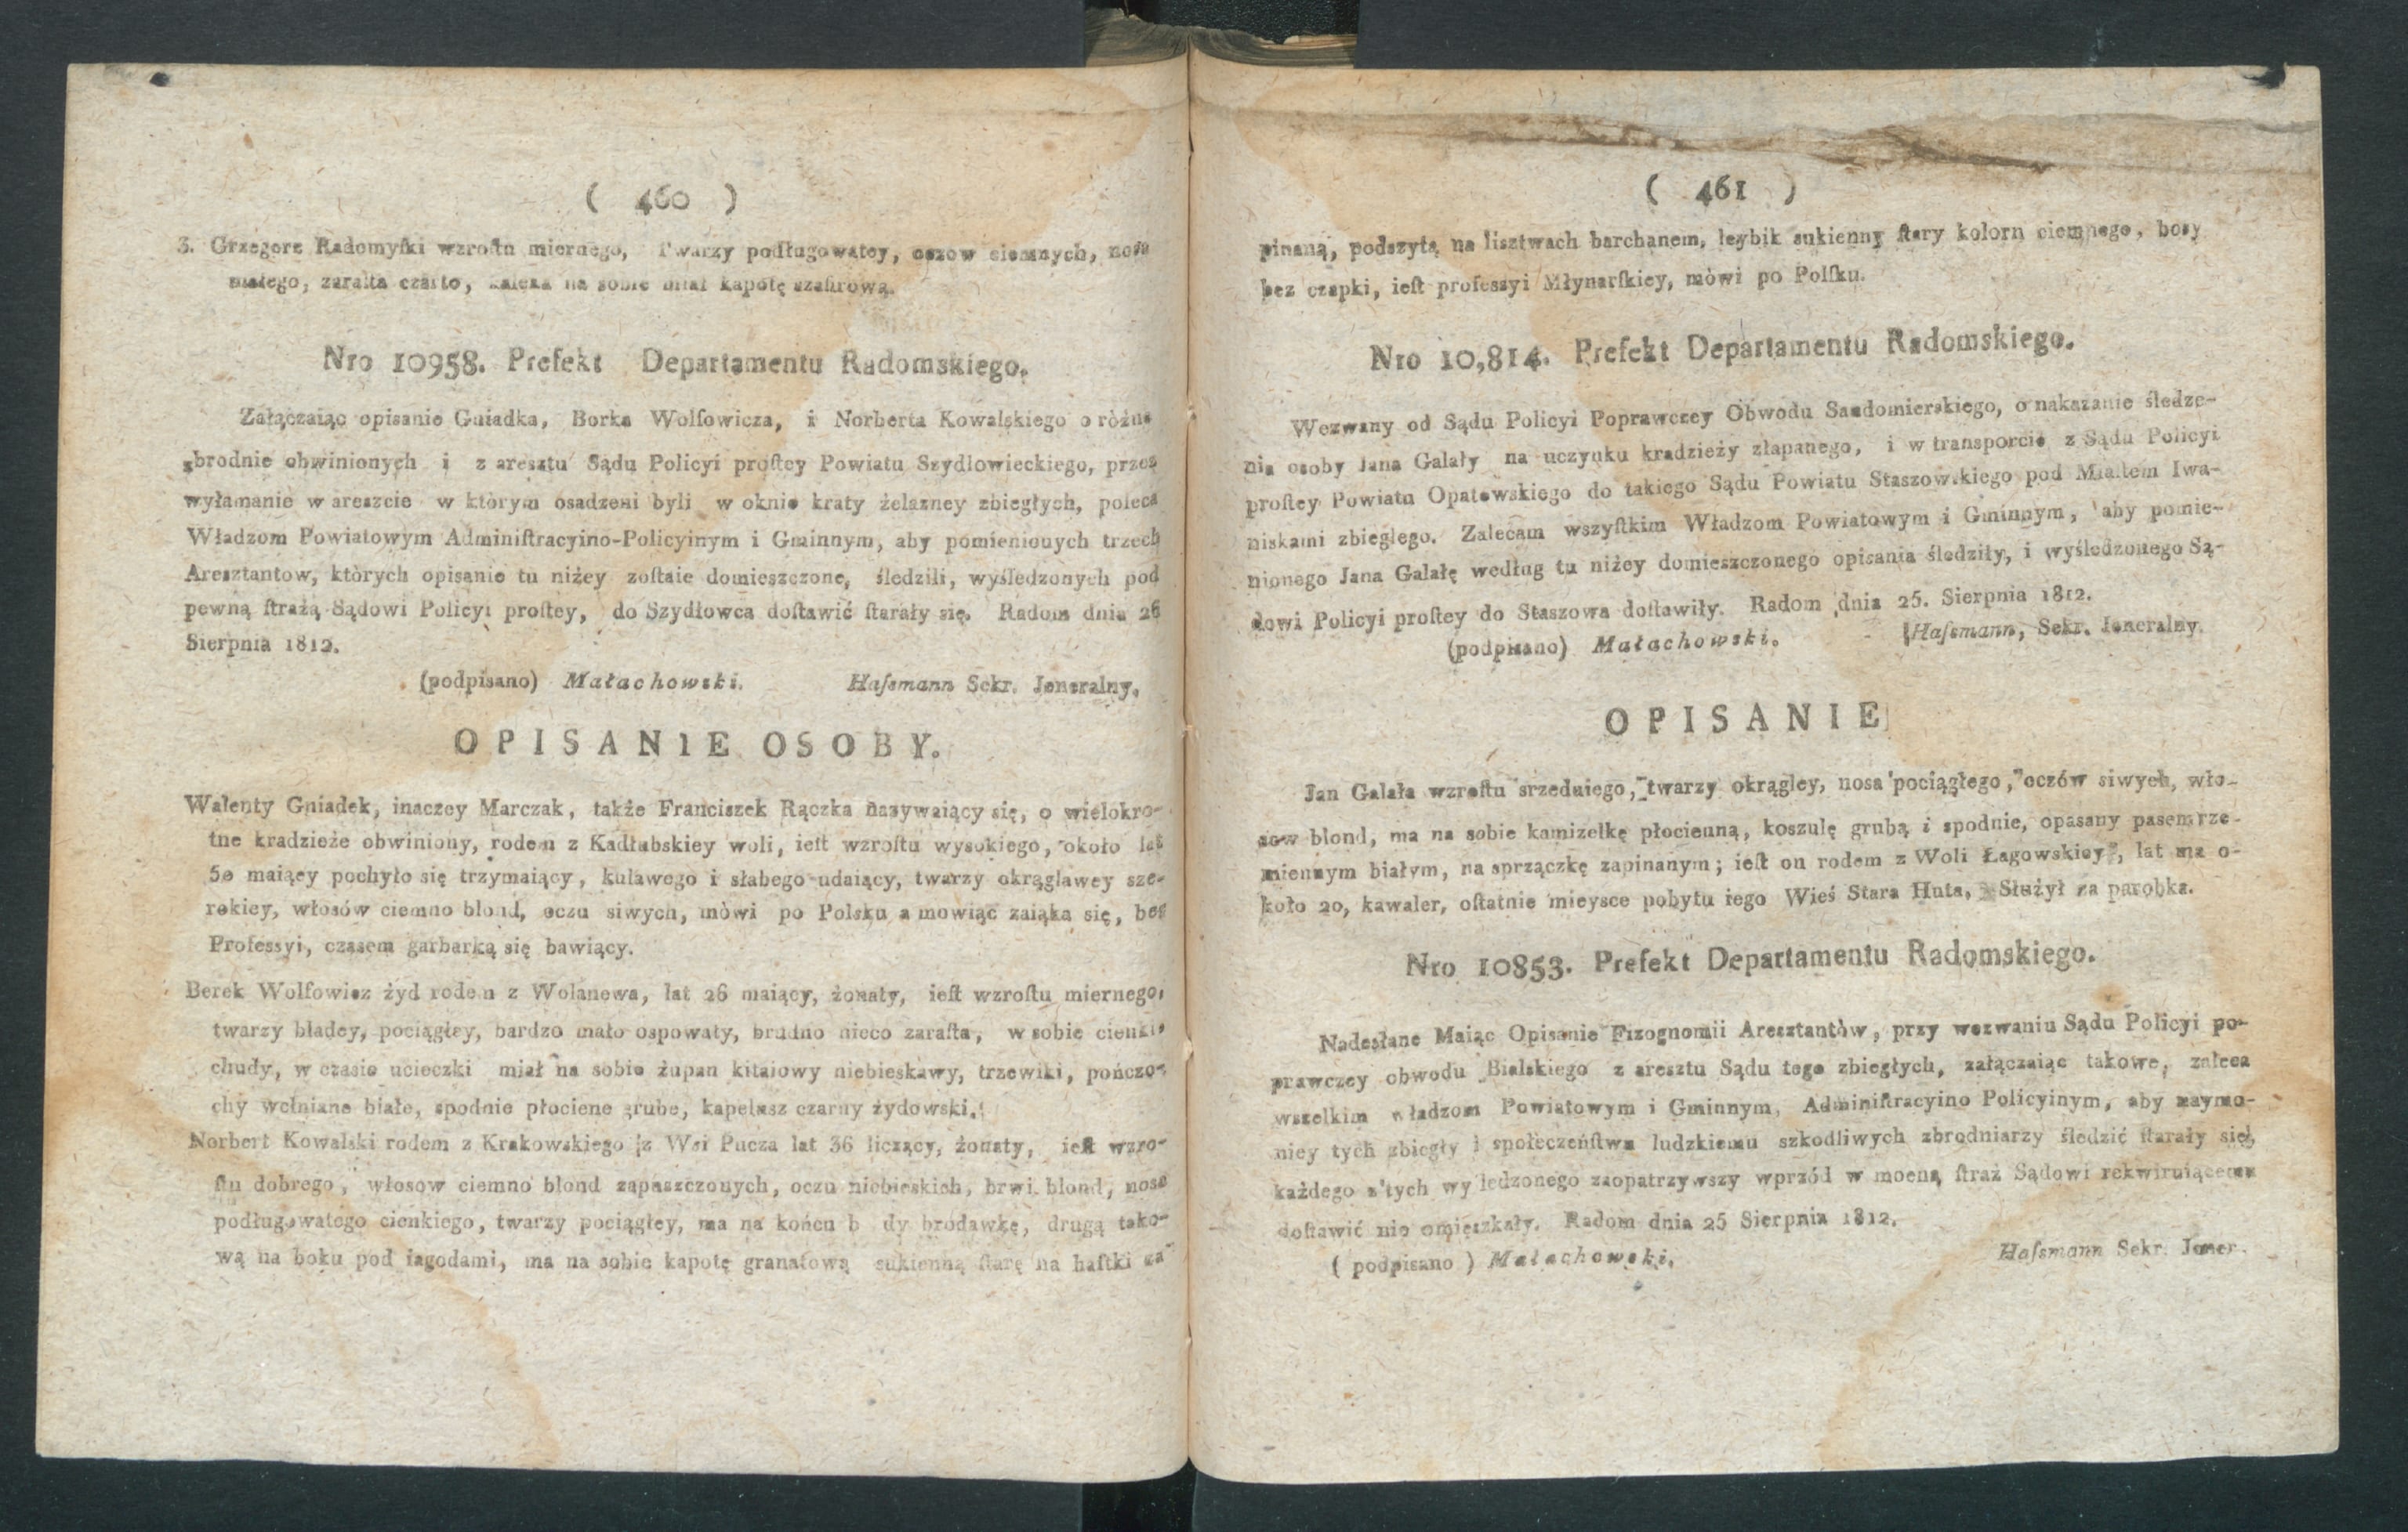 ( 460 )
3. Grzegorz Radomyſki wzroſtu miernego, Twarzy podługowatey, oczow ciemnych, nosa
małego, zaraſta czarto, na sobie miał kapotę szafirową.
Nro 10958. Prefekt Departamentu Radomskiego.
Załączaiąc opisanie Gniadka, Borka Wolfowicza, i Norberta Kowalskiego o różne
zbrodnie obwinionych i z aresztu Sądu Policyi proſtey Powiatu Szydlowieckiego, przez
wyłamanie w areszcie w którym osadzeni byli w oknie kraty żelazney zbiegłych, poleca
Władzom Powiatowym Adminiſtracyino-Policyinym i Gminnym, aby pomienionych trzech
Aresztantow, których opisanie tu niżey zoſtaie domieszczone, śledzili, wyśledzonych pod
pewną ſtrażą Sądowi Policyi proſtey, do Szydłowca doſtawić ſtarały się. Radom dnia 26
Sierpnia 1812.
(podpisano) Małachowski. Haſsmann Sekr. Jeneralny.
OPISANIE OSOBY.
Walenty Gniadek, inaczey Marczak, także Franciszek Rączka nazywaiący się, o wielokro-
tne kradzieże obwiniony, rodem z Kadłubskiey woli, ieſt wzroſtu wysokiego, około lat
50 maiący pochyło się trzymaiący, kulawego i słabego udaiący, twarzy okrągławey sze-
rokiey, włosów ciemno blond, oczu siwych, mówi po Polsku a mowiąc zaiąka się, bez
Professyi, czasem garbarką się bawiący.
Berek Wolfowicz żyd rodem z Wolanewa, lat 26 maiący, żonaty, ieſt wzroſtu miernego,
twarzy bładey, pociągłey, bardzo mało ospowaty, brudno nieco zaraſta, w sobie cienki
chudy, w czasie ucieczki miał na sobie żupan kitaiowy niebieskawy, trzewiki, pończo-
chy wełniane białe, spodnie płociene grube, kapelusz czarny żydowski.
Norbert Kowalski rodem z Krakowskiego z Wsi Pucza lat 36 liczący, żonaty, ieſt wzro-
ſtu dobrego, włosow ciemno blond zapuszczonych, oczu niebieskich, brwi blond, nosa
podługowatego cienkiego, twarzy pociągłey, ma na końcu b dy brodawkę, drugą tako-
wą na boku pod iagodami, ma na sobie kapotę granatową sukienną ſtarę na haftki za
( 461 )
pinaną, podszytą na lisztwach barchanem, leybik sukienny ſtary kolorn ciemnego, bosy
bez czapki, ieſt professyi Młynarſkiey, mówi po Polſku.
Nro 10,814. Prefekt Departamentu Radomskiego.
Wezwany od Sądu Policyi Poprawczey Obwodu Sandomierskiego, o nakazanie śledze-
nia osoby Jana Galały na uczynku kradzieży złapanego, i w transporcie z Sądu Policyi
proſtey Powiatu Opatowskiego do takiego Sądu Powiatu Staszowskiego pod Miaſtem Iwa-
niskami zbiegłego. Zalecam wszyſtkim Władzom Powiatowym i Gminnym, aby pomie-
nionego Jana Galałę według tu niżey domieszczonego opisania śledziły, i wyśledzonego Są-
dowi Policyi proſtey do Staszowa doſtawiły. Radom dnia 25. Sierpnia 1812.
(podpisano) Małachowski. Haſsmann, Sekr. Jeneralny.
OPISANIE
Jan Galała wzroſtu srzedniego, twarzy okrągley, nosa pociągłego, oczów siwych, wło-
sow blond, ma na sobie kamizelkę płocienną, koszulę grubą i spodnie, opasany pasem rze-
miennym białym, na sprzączkę zapinanym; ieſt on rodem z Woli Łagowskiey, lat ma o-
koło 20, kawaler, oſtatnie mieysce pobytu iego Wieś Stara Huta, Służył za parobka.
Nro 10853. Prefekt Departamentu Radomskiego.
Nadesłane Maiąc Opisanie Fizognomii Aresztantów, przy wezwaniu Sądu Policyi po-
prawczey obwodu Bialskiego z aresztu Sądu tego zbiegłych, załączaiąc takowe, zaleca
wszelkim władzom Powiatowym i Gminnym, Adminiſtracyino Policyinym, aby naymo-
niey tych zbiegły i społeczeńſtwa ludzkiemu szkodliwych zbrodniarzy śledzić ſtarały się,
każdego z tych wy ledzonego zaopatrzywszy wprzód w mocną ſtraż Sądowi rekwiruiącemu
doſtawić nie omięszkały. Radom dnia 25 Sierpnia 1812.
( podpisano ) Małachowski. Haſsmann Sekr. Jener.